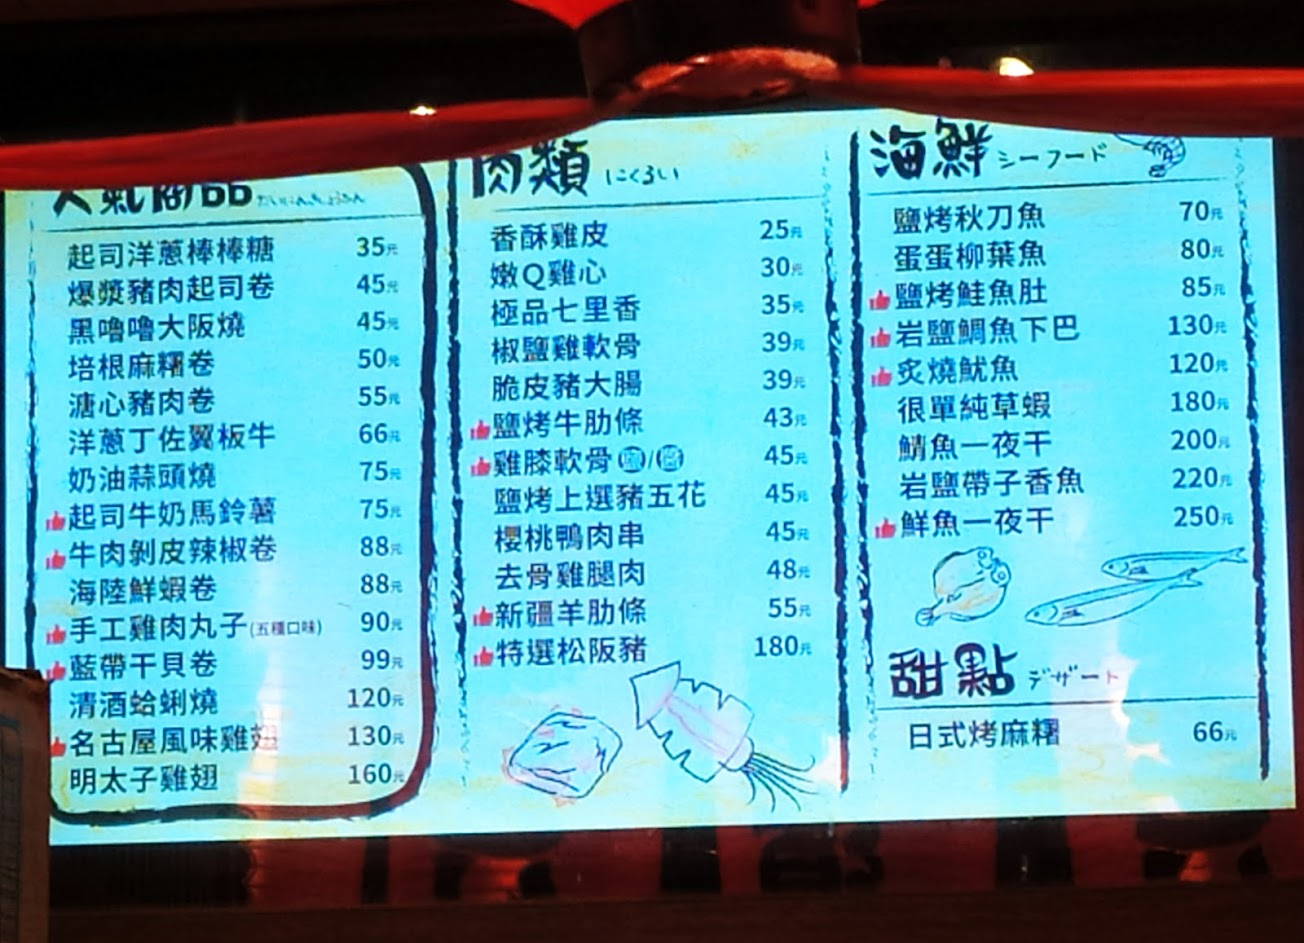 人氣商品
起司洋蔥棒棒糖 35元
爆漿豬肉起司卷 45元
黑嚕嚕大阪燒 45元
培根麻糬卷 50元
溏心豬肉卷 55元
洋蔥丁佐翼板牛 66元
奶油蒜頭燒 75元
起司牛奶馬鈴薯 75元
牛肉剝皮辣椒卷 88元
海陸鮮蝦卷 88元
手工雞肉丸子(五種口味) 90元
藍帶干貝卷 99元
清酒蛤蜊燒 120元
名古屋風味雞翅 130元
明太子雞翅 160元
肉類 にくるい
香酥雞皮 25元
嫩Q雞心 30元
極品七里香 35元
椒鹽雞軟骨 39元
脆皮豬大腸 39元
鹽烤牛肋條 43元
雞膝軟骨(鹽/醬) 45元
鹽烤上選豬五花 45元
櫻桃鴨肉串 45元
去骨雞腿肉 48元
新疆羊肋條 55元
特選松阪豬 180元
海鮮 シーフード
鹽烤秋刀魚 70元
蛋蛋柳葉魚 80元
鹽烤鮭魚肚 85元
岩鹽鯛魚下巴 130元
炙燒魷魚 120元
很單純草蝦 180元
鯖魚一夜干 200元
岩鹽帶子香魚 220元
鮮魚一夜干 250元
甜點 デザート
日式烤麻糬 66元